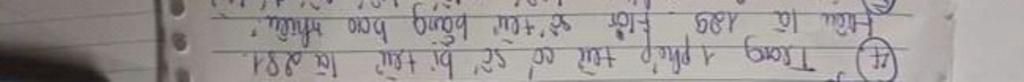 (4) Trong 1 phép trừ có số bị trừ là 281.
Hiệu là 129. Hỏi số trừ bằng bao nhiêu?